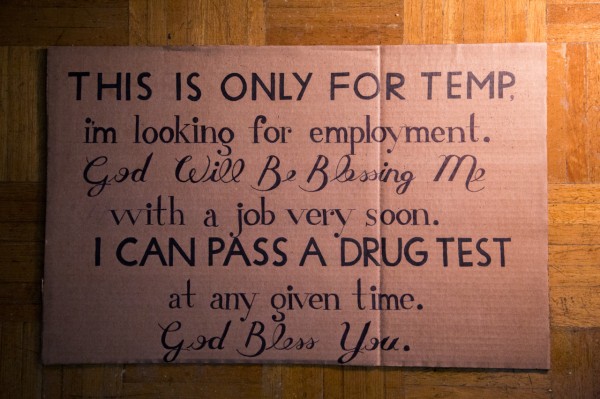 THIS IS ONLY FOR TEMP.
i'm looking for employment.
God Will Be Blessing Me
with a job very soon.
I CAN PASS A DRUG TEST
at any given time.
God Bless You.